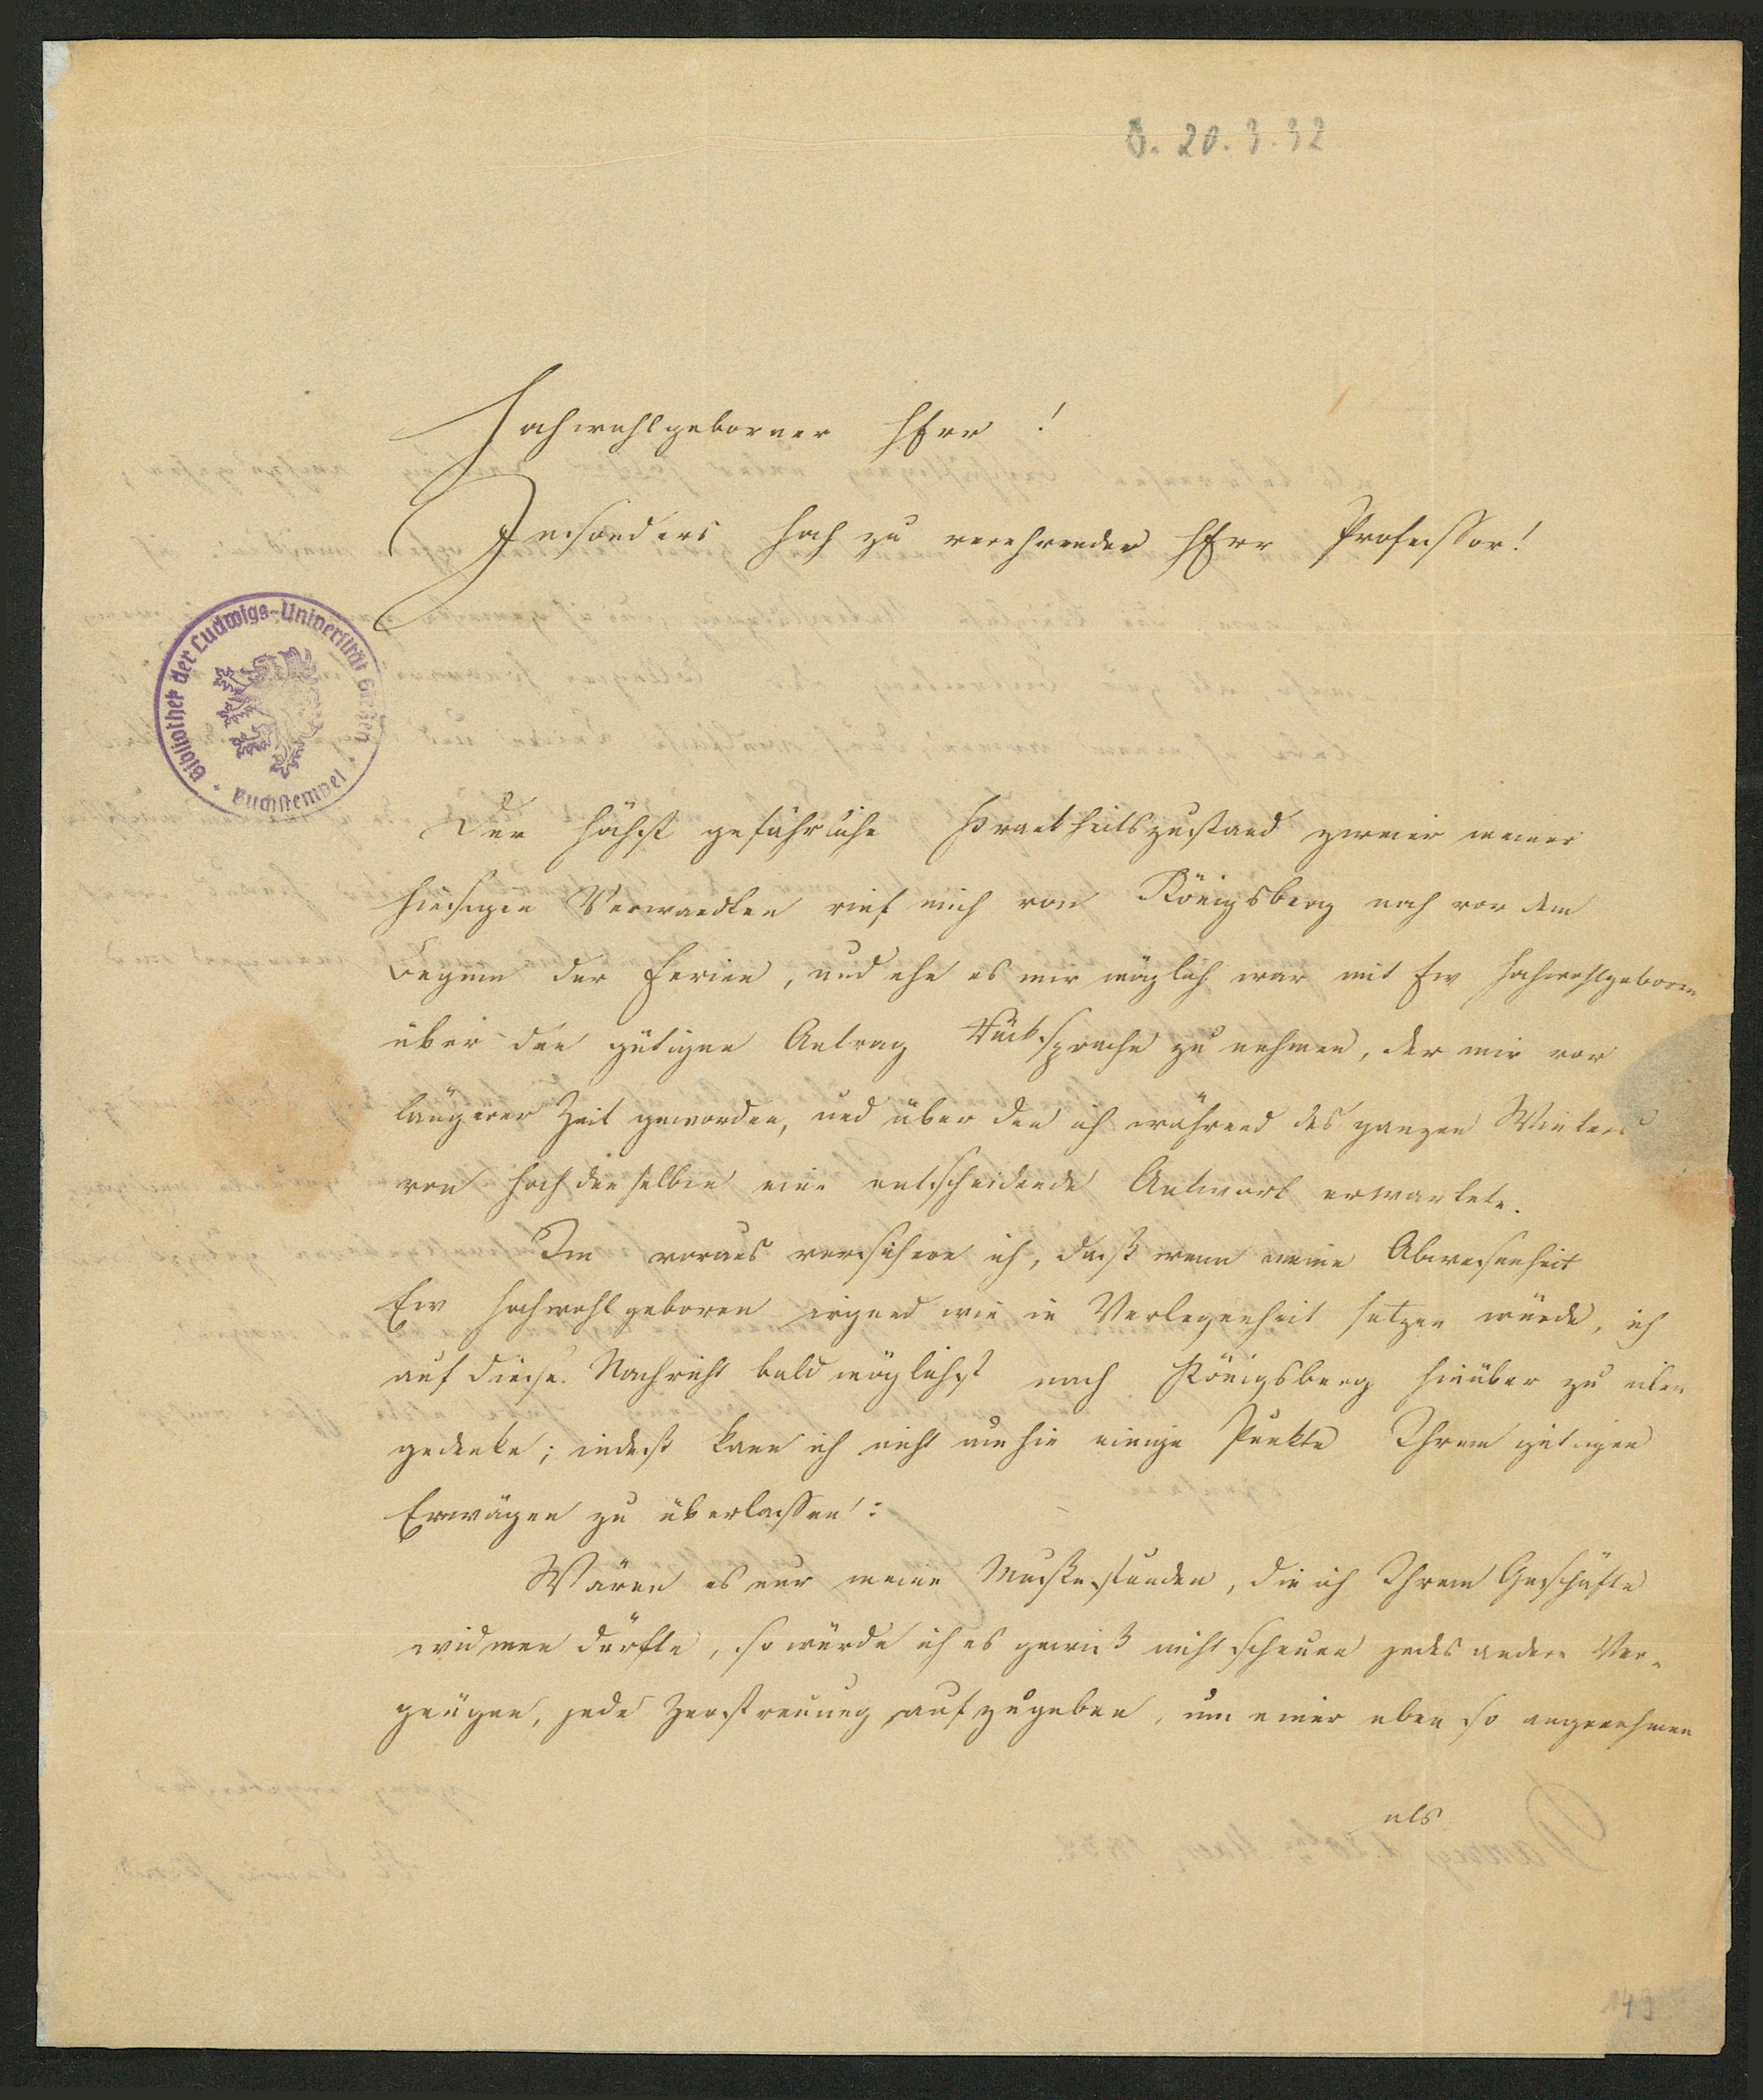 d. 20.3.32
Hochwohlgeborner Herr!
Insonders hoch zu verehrender Herr Professor!
Bibliothek der Ludwigs-Universität Gießen
Buchstempel
Der höchst gefährliche Krankheitszustand zweier meiner
hiesigen Verwandten rief mich von Königsberg noch vor dem
Beginn der Ferien, und ehe es mir möglich war mit Ew Hochwohlgeboren
über den gütigen Antrag Rücksprache zu nehmen, der mir vor
längerer Zeit geworden, und über den ich während des ganzen Winters
von Hochdenselben eine entscheidende Antwort erwartete.
Im voraus versichere ich, daß wenn meine Abwesenheit
Ew Hochwohlgeboren irgend wie in Verlegenheit setzen würde, ich
auf diese Nachricht baldmöglichst nach Königsberg hinüber zu eilen
gedenke; indeß kann ich nicht umhin einige Punkte Ihrem gütigen
Erwägen zu überlassen:
Wären es nur meine Mußestunden, die ich Ihrem Geschäfte
widmen dürfte, so würde ich es gewiß nicht scheuen jedes andere Ver-
gnügen, jede Zerstreuung aufzugeben, um einer eben so angenehmen
als
149